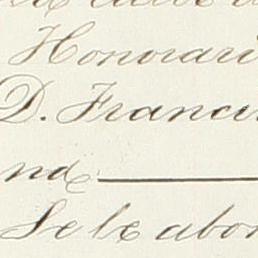 Honorari
D. Franci
nde
Se le abon